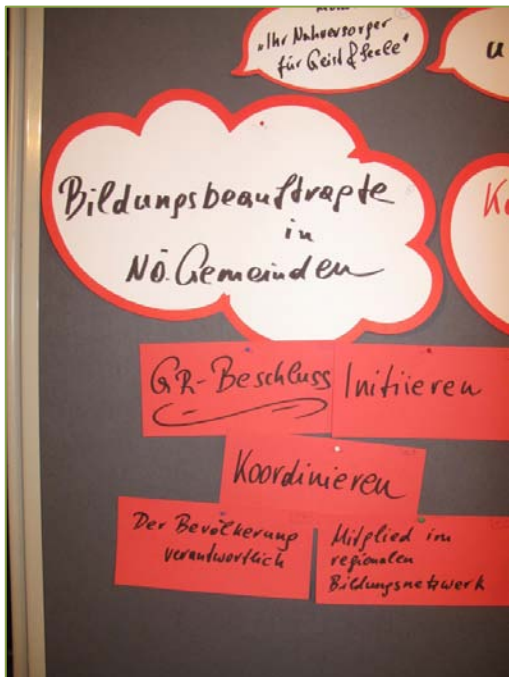 "Ihr Nahversorger
für Geist & Seele"
u
Bildungsbeauftragte
in
NÖ. Gemeinden
K
GR-Beschluss
Initiieren
Koordinieren
Der Bevölkerung
verantwortlich
Mitglied im
regionalen
Bildungsnetzwerk